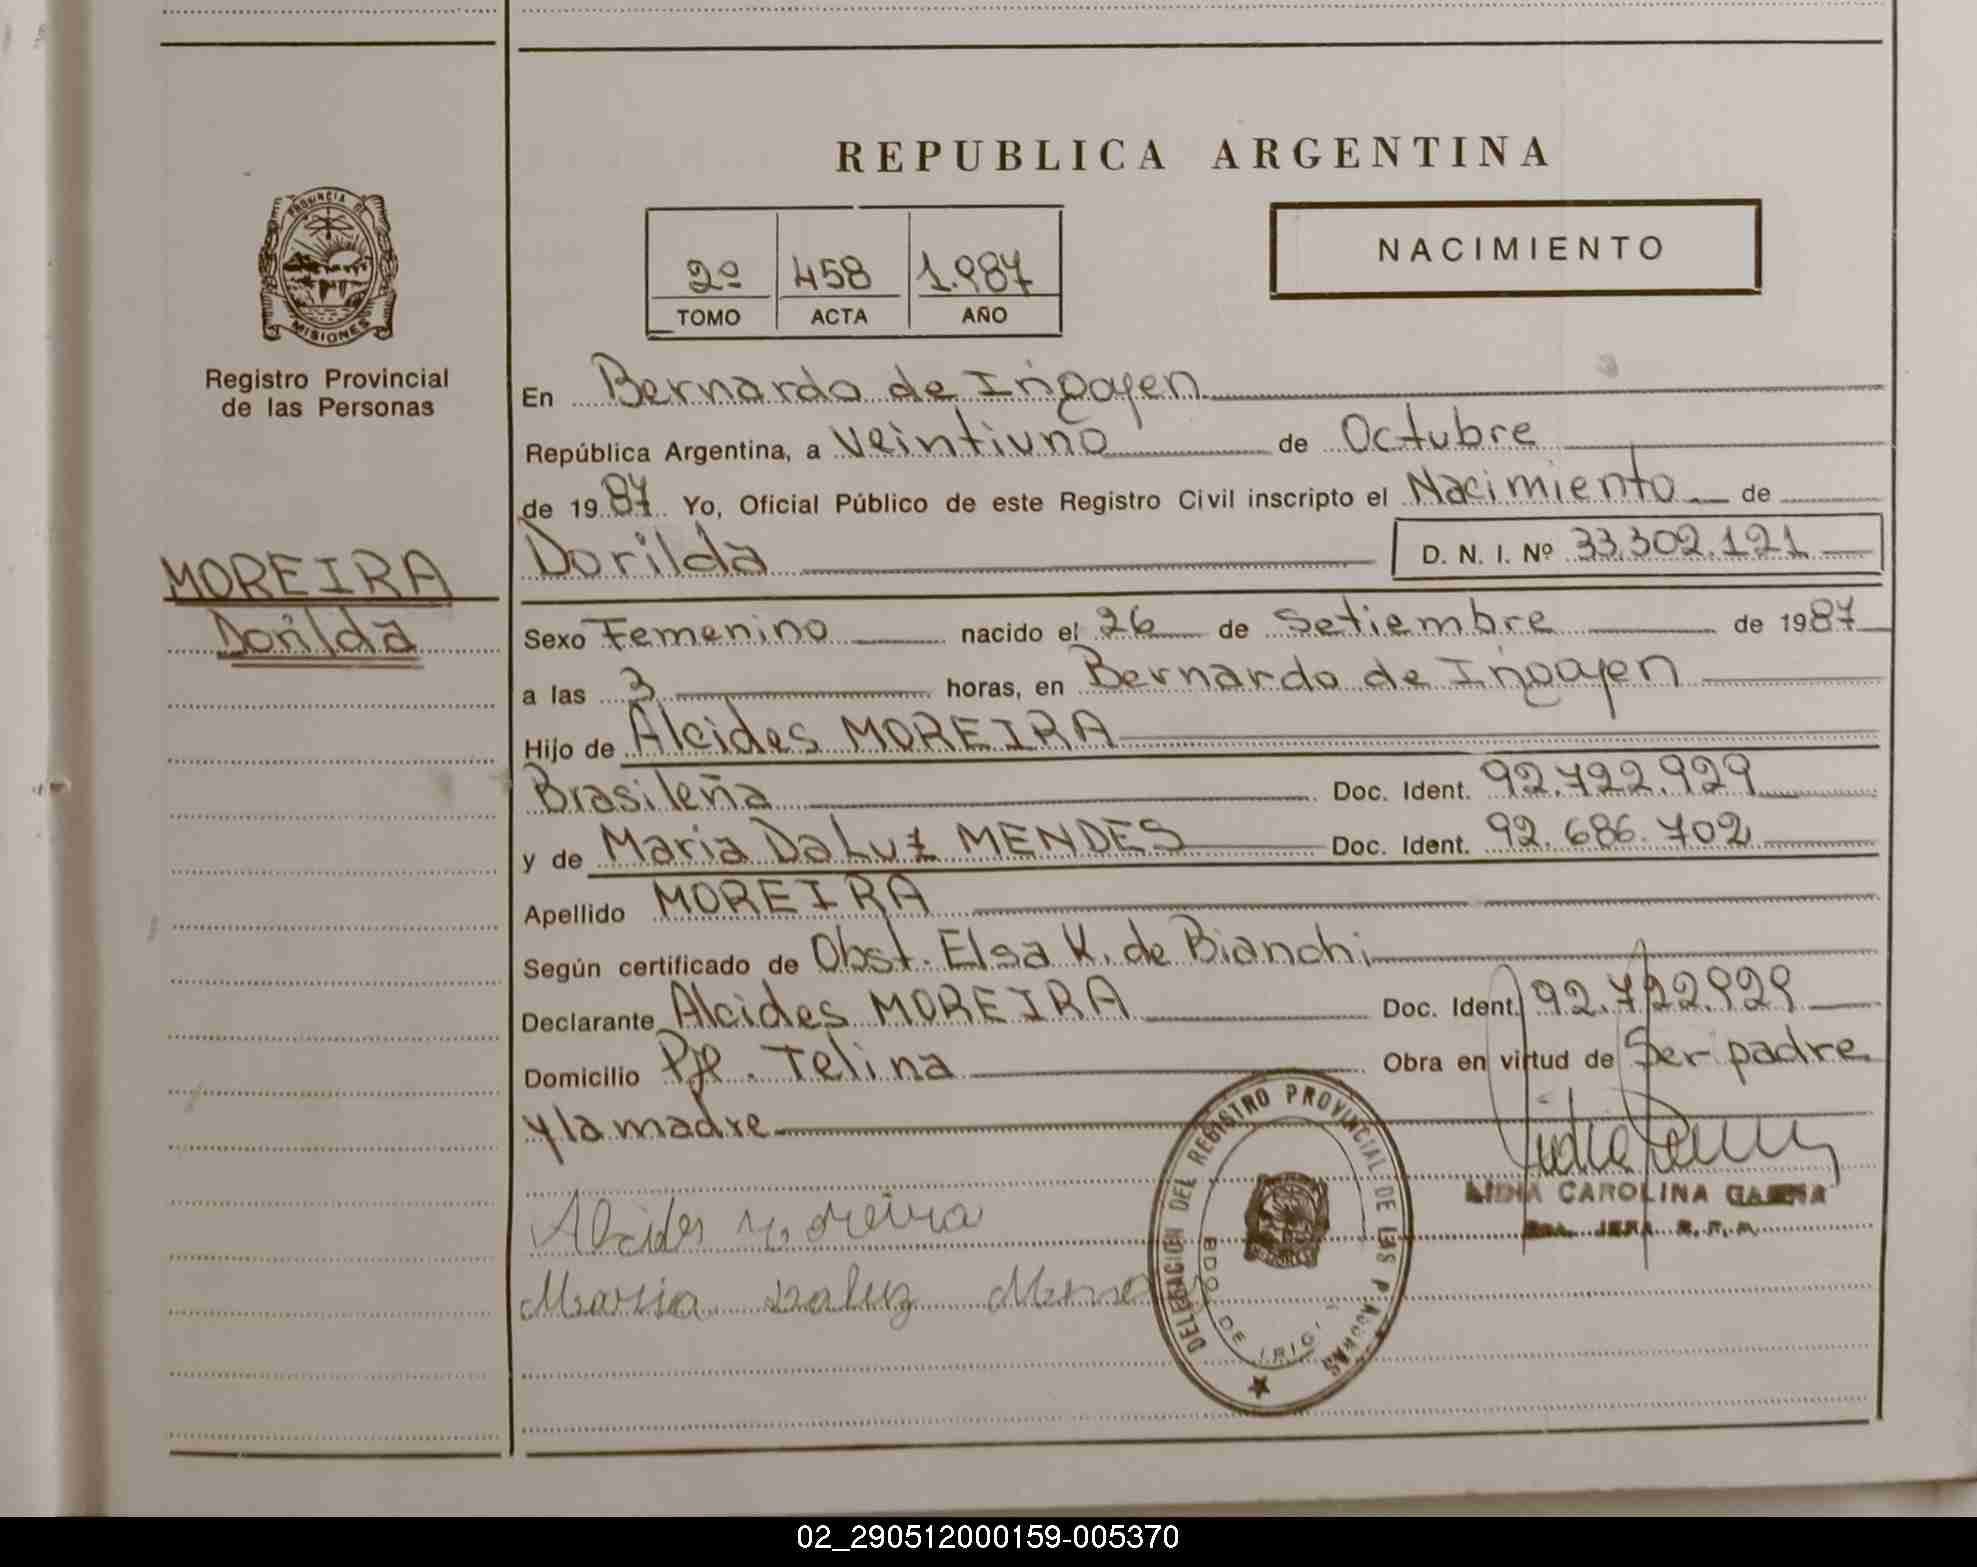 REPUBLICA ARGENTINA
PROVINCIA DE
MISIONES
Registro Provincial
de las Personas
MOREIRA
Dorilda
2º 458 1.987
TOMO ACTA AÑO
NACIMIENTO
En Bernardo de Irigoyen
República Argentina, a Veintiuno de Octubre
de 1987 Yo, Oficial Público de este Registro Civil inscripto el Nacimiento de
Dorilda D. N. I. Nº 33.302.121
Sexo Femenino nacido el 26 de Setiembre de 1987
a las 3 horas, en Bernardo de Irigoyen
Hijo de Alcides MOREIRA
Brasileña Doc. Ident. 92.722.929
y de Maria Da Luz MENDES Doc. Ident. 92.686.702
Apellido MOREIRA
Según certificado de Obst. Elsa K. de Bianchi
Declarante Alcides MOREIRA Doc. Ident. 92.722.929
Domicilio Pje. Telina Obra en virtud de Ser padre
y la madre
Alcides Moreira
Maria daluz
DELEGACION DEL REGISTRO PROVINCIAL DE LAS PERSONAS
BDO. DE IRIG
CAROLINA
02_290512000159-005370